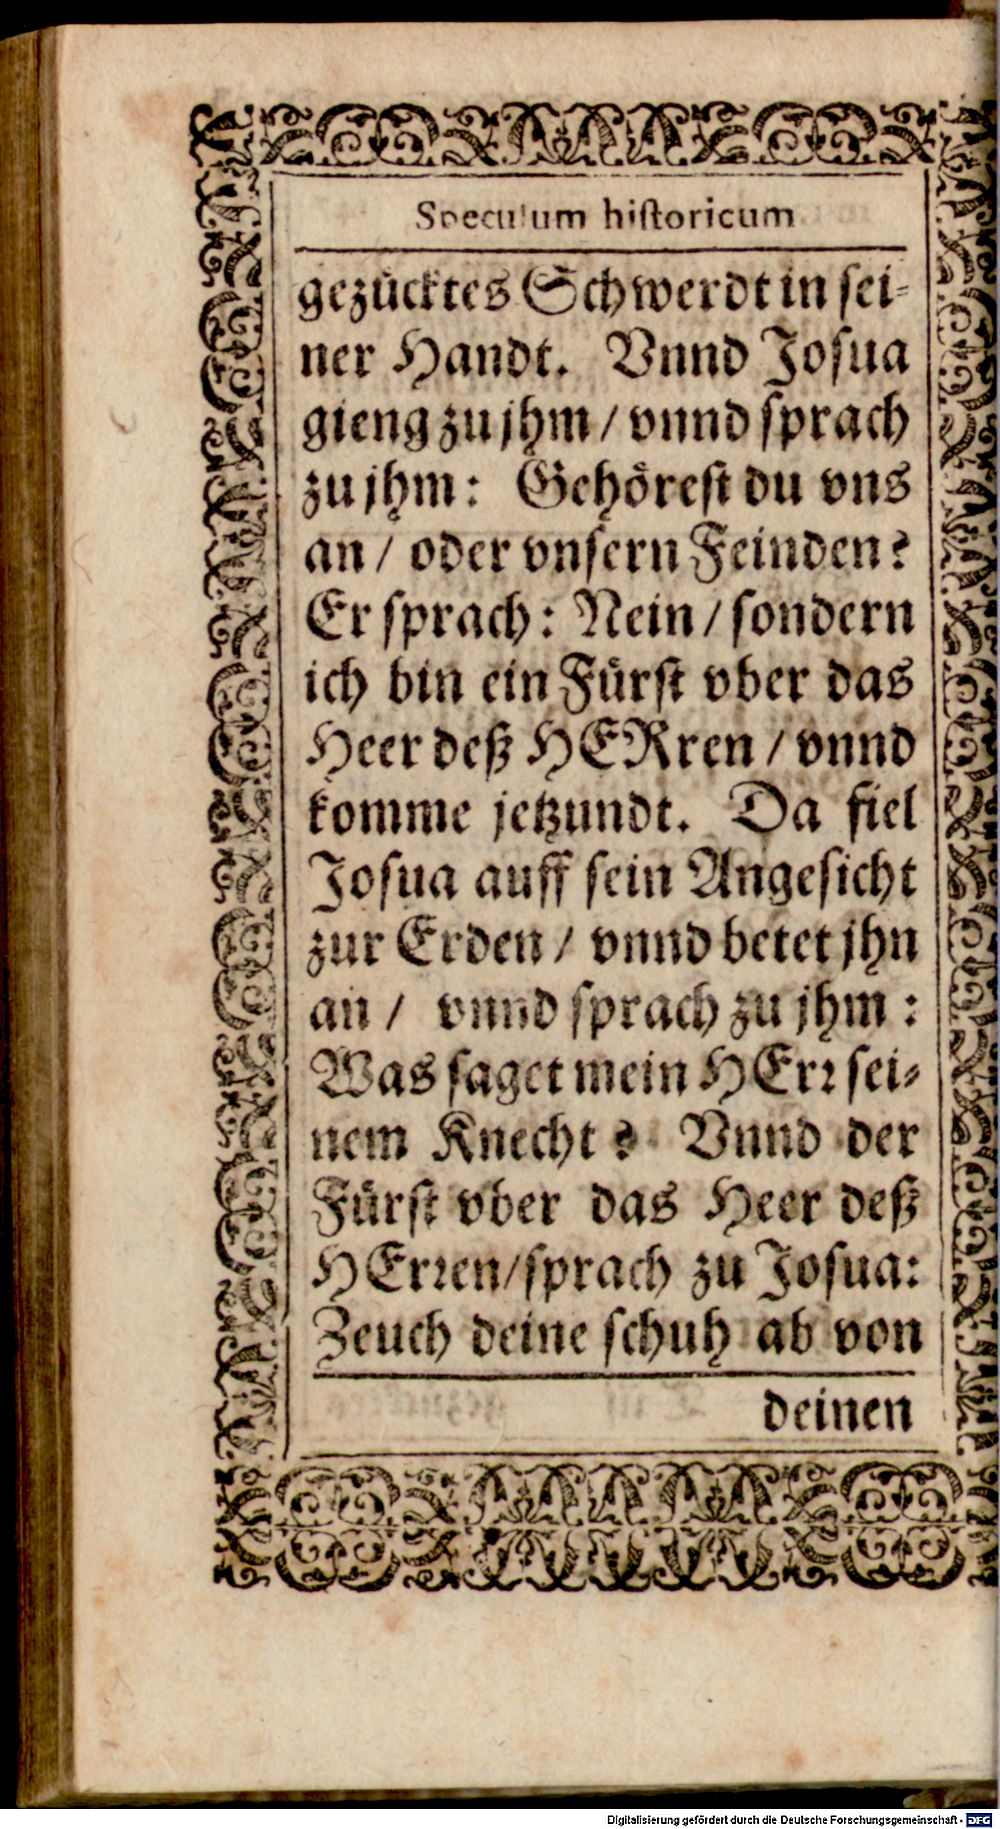 Speculum hiſtoricum
gezücktes Schwerdt in ſei-
ner Handt. Vnnd Joſua
gieng zu jhm / vnnd ſprach
zu jhm: Gehöreſt du vns
an / oder vnſern Feinden?
Er ſprach: Nein / ſondern
ich bin ein Fürſt vber das
Heer deß HERren / vnnd
komme jetzundt. Da fiel
Joſua auff ſein Angeſicht
zur Erden / vnnd betet jhn
an / vnnd ſprach zu jhm:
Was ſaget mein HErꝛ ſei-
nem Knecht? Vnnd der
Fürſt vber das Heer deß
HErꝛen / ſprach zu Joſua:
Zeuch deine ſchuh ab von
deinen
Digitalisierung gefördert durch die Deutsche Forschungsgemeinschaft - DFG